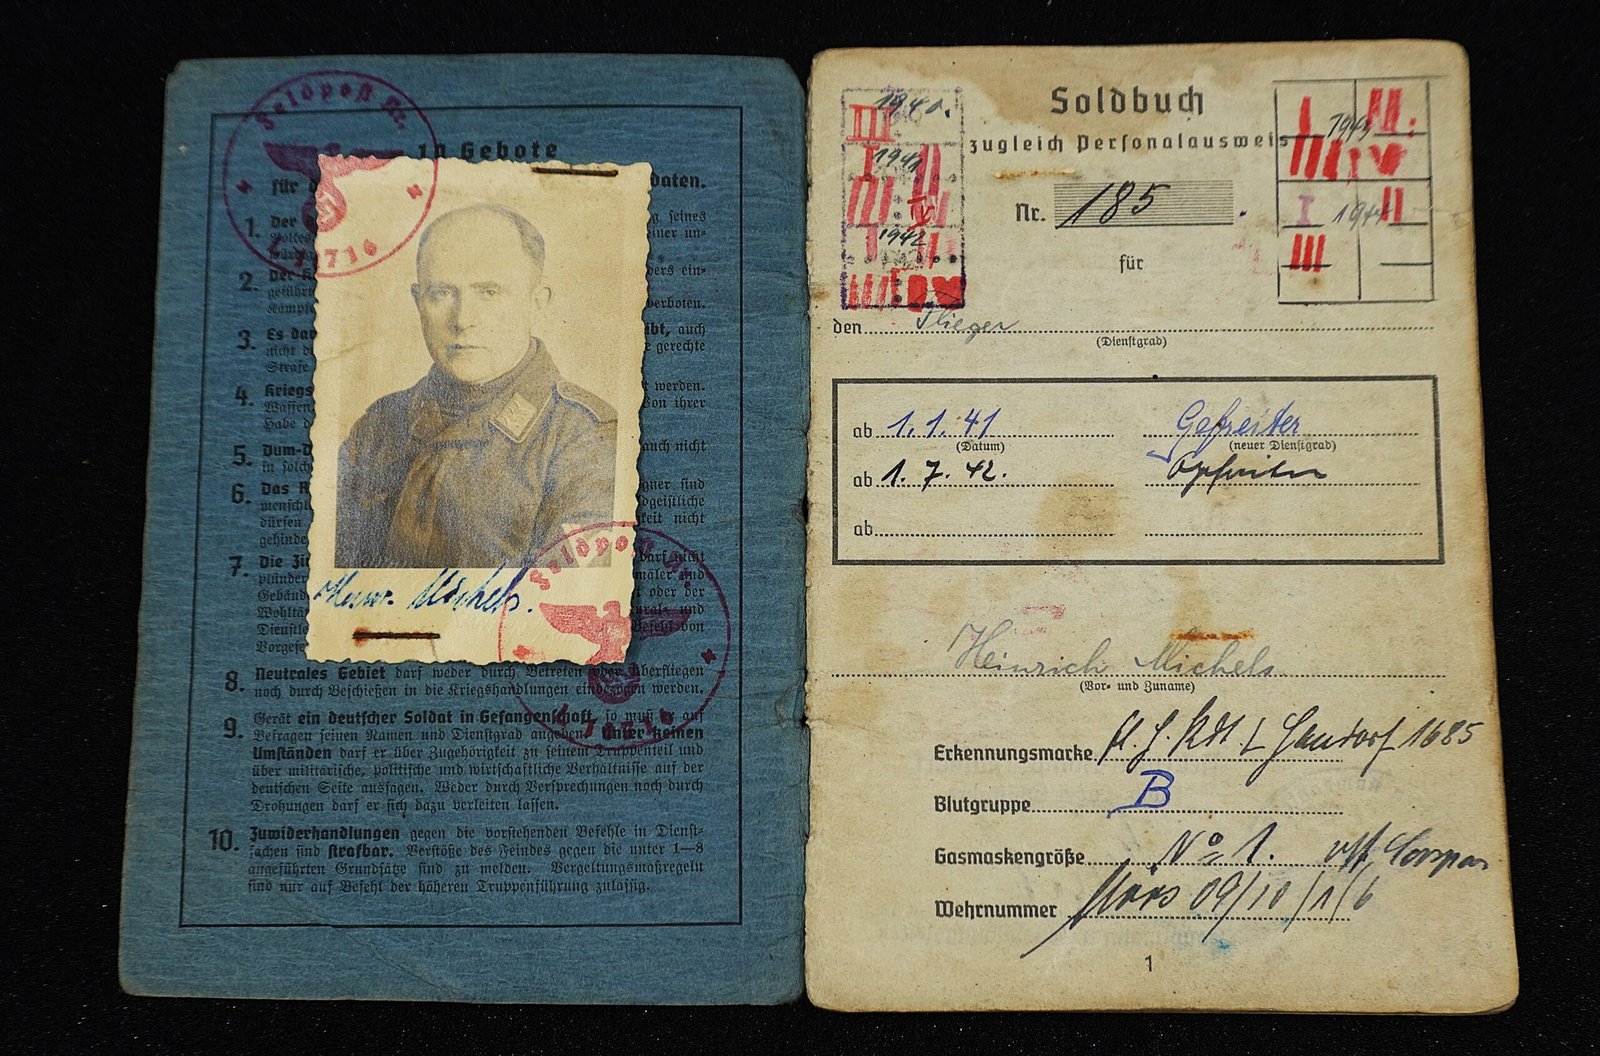 Feldpost Nr.
10 Gebote
für d
daten.
1. Der d
g seines
einer un-
2. Der K
ders ein-
geführt
verboten.
Kämpf
3. Es dar
übt, auch
nicht d
r gerechte
Strafe
4. Kriegs
t werden.
Waffen,
Von ihrer
Habe d
5. Dum-D
auch nicht
in solch
6. Das R
gner sind
menschl
dgeistliche
dürfen
keit nicht
gehinde
7. Die Zi
darf nicht
plünder
mäler und
Gebäud
t oder der
Wohltä
tural- und
Dienstle
Befehl von
Vorgese
Heinr. Michels.
Feldpost Nr.
8. Neutrales Gebiet darf weder durch Betreten oder Überfliegen
noch durch Beschießen in die Kriegshandlungen einbezogen werden.
9. Gerät ein deutscher Soldat in Gefangenschaft, so muß er auf
Befragen seinen Namen und Dienstgrad angeben. Unter keinen
Umständen darf er über Zugehörigkeit zu seinem Truppenteil und
über militärische, politische und wirtschaftliche Verhältnisse auf der
deutschen Seite aussagen. Weder durch Versprechungen noch durch
Drohungen darf er sich dazu verleiten lassen.
10. Zuwiderhandlungen gegen die vorstehenden Befehle in Dienst-
sachen sind strafbar. Verstöße des Feindes gegen die unter 1—8
angeführten Grundsätze sind zu melden. Vergeltungsmaßregeln
sind nur auf Befehl der höheren Truppenführung zulässig.
Soldbuch
zugleich Personalausweis
1940.
III
1941
I II
III IV
1942
I II
III
I 1943 II
III IV
I 1944 II
III
Nr. 185
für
den Flieger
(Dienstgrad)
ab 1.1.41 Gefreiter
(Datum) (neuer Dienstgrad)
ab 1.7.42.
ab
Heinrich Michels
(Vor- und Zuname)
Erkennungsmarke 1685
Blutgruppe B
Gasmaskengröße No 1.
Wehrnummer Mörs 09/10/1/6
1